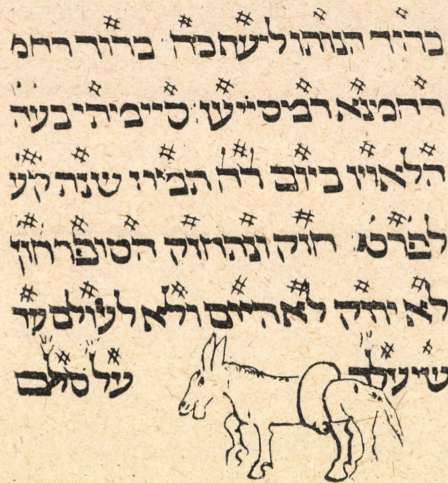 ברוך הנותן ליעף כח ברוך רחמ
רחמנא דמסייען סיימתי בעה
ביום תמוז שנה קע
לפרט חזק ונתחזק הסופר חזק
לא יוזק לא היום ולא לעולם עד
שיעלה על סולם